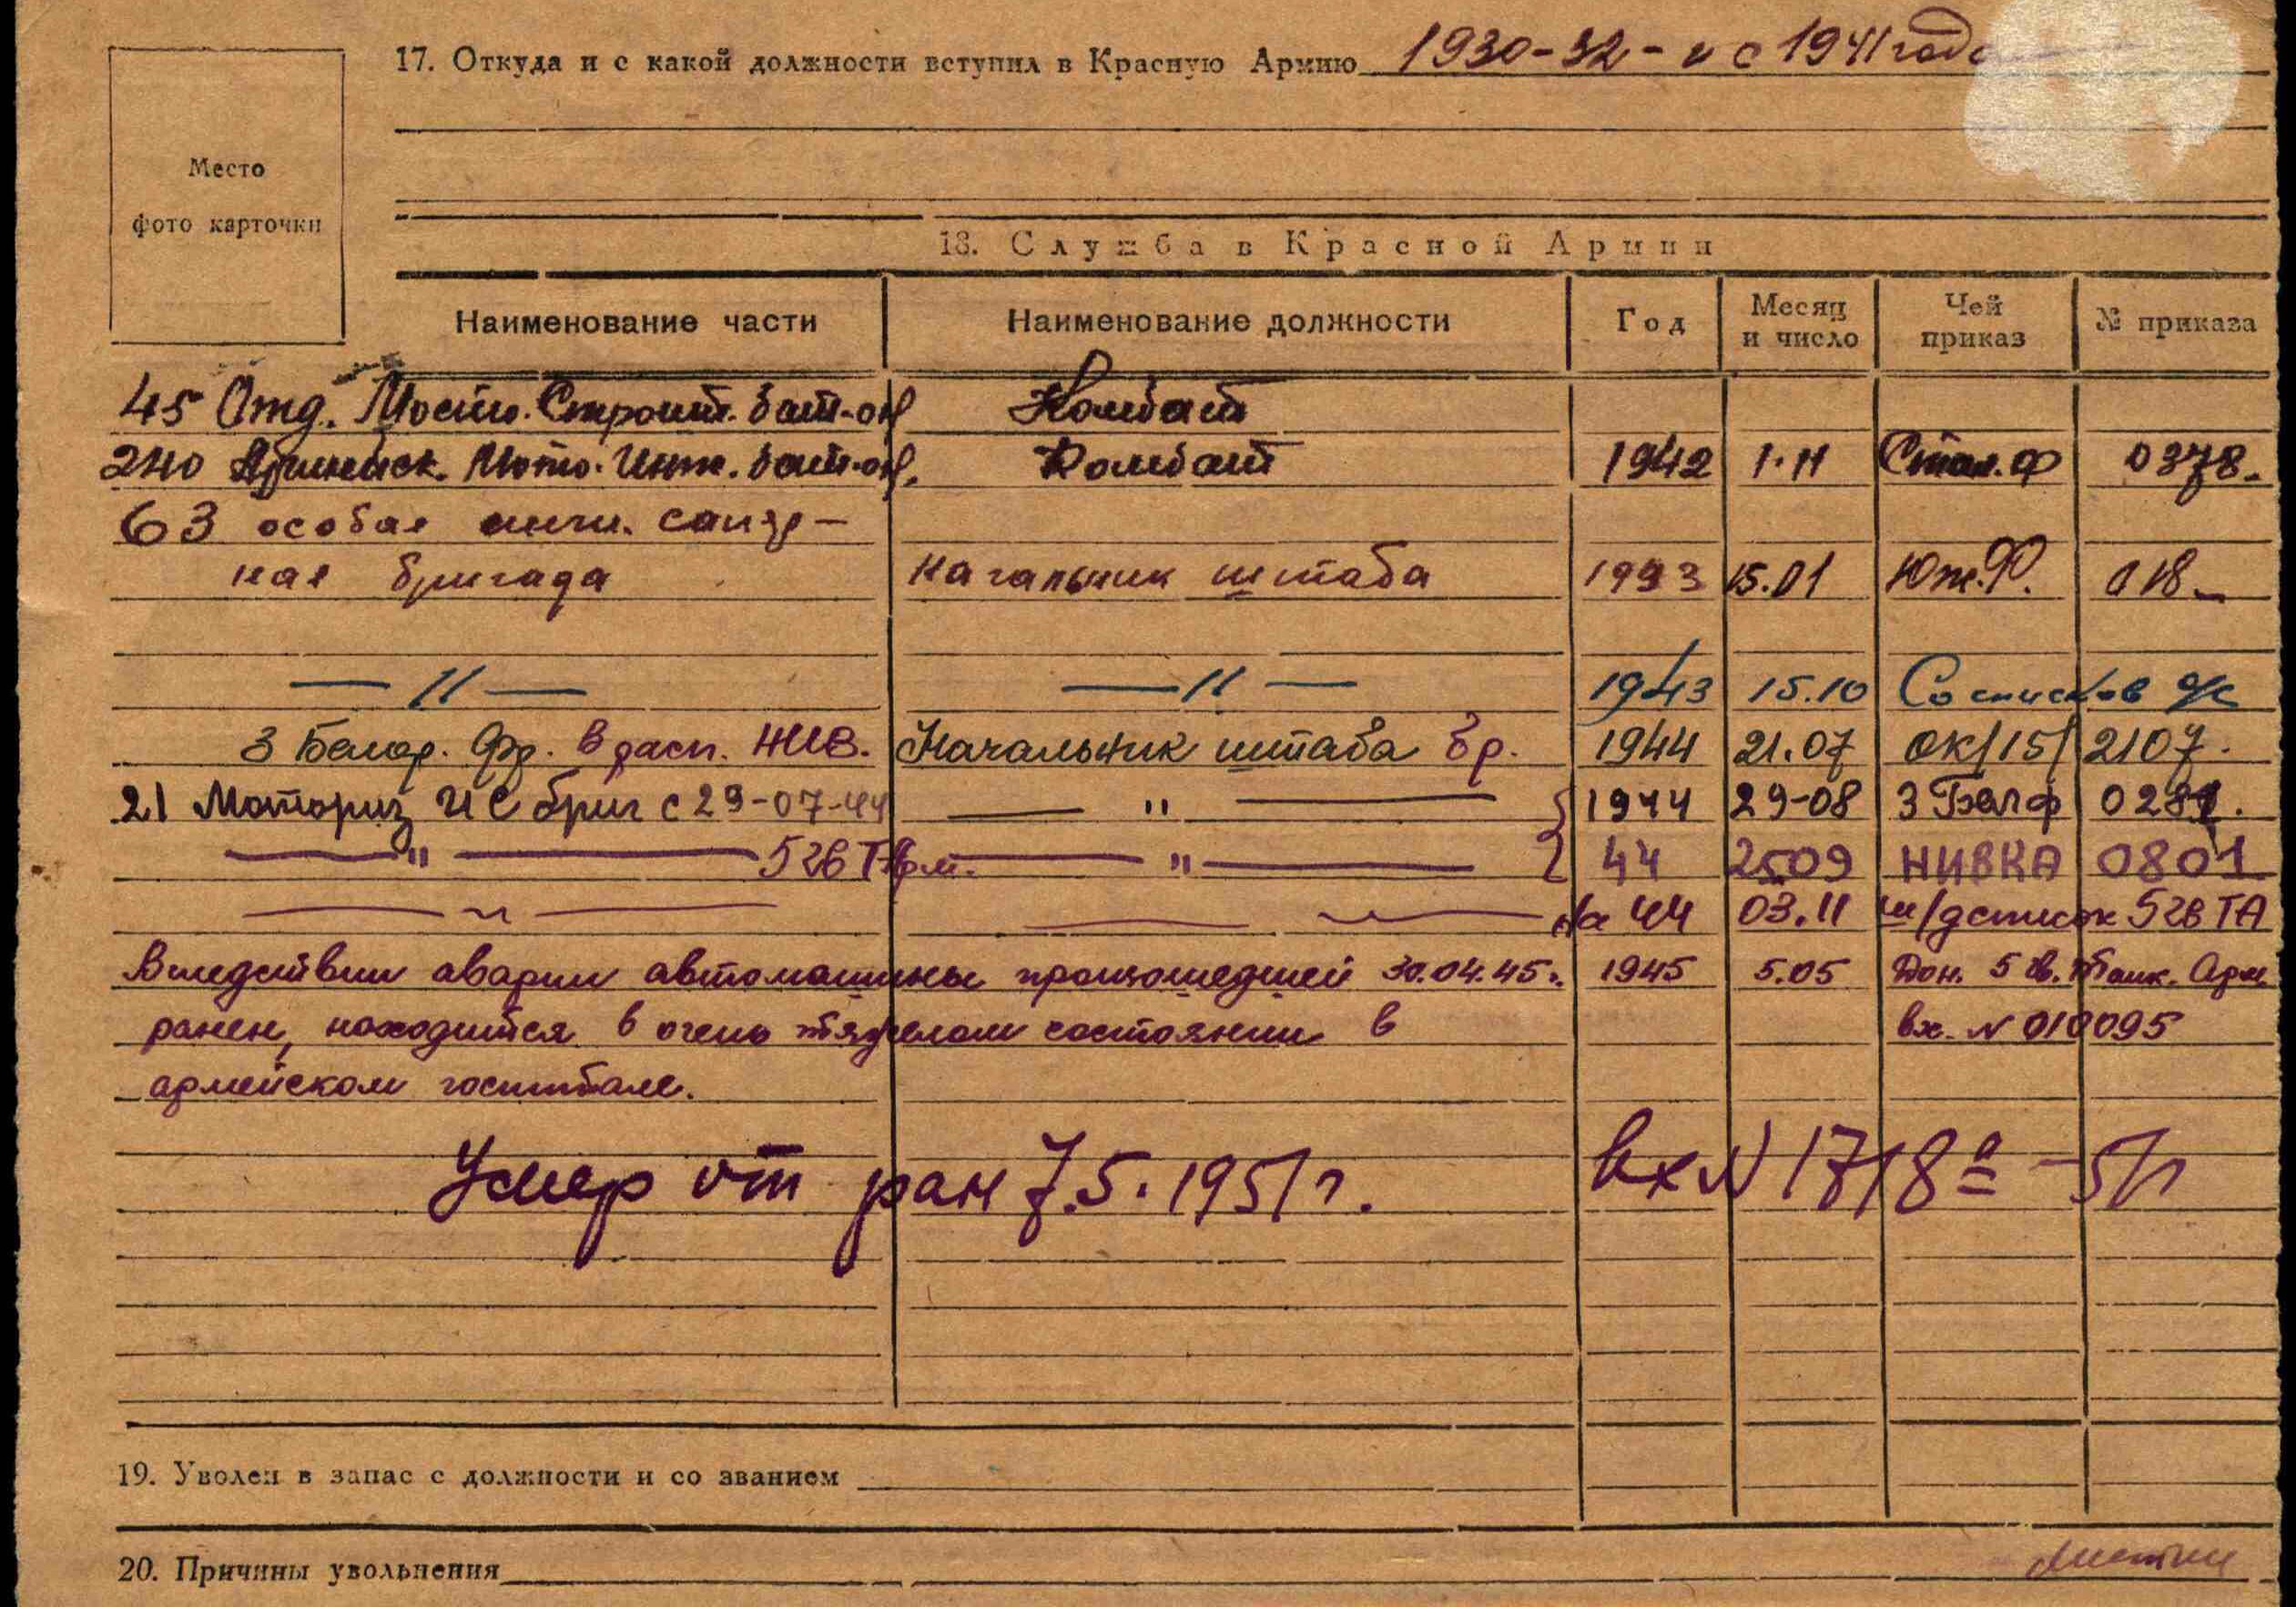 17. Откуда и с какой должности вступил в Красную Армию 1930-32 - и с 1941 года
Место
фото карточки
18. Служба в Красной Армии
Наименование части Наименование должности Год Месяц и число Чей приказ № приказа
45 Отд. Мосто. Строит. бат-он Комбат
240 Армейск. Мото. Инж. бат-он. Комбат 1942 1.11 Стал. Ф 0378.
63 особая инжи. сапер-
ная бригада начальник штаба 1943 15.01 Юж.Ф. 018
— 11 — — 11 — 1943 15.10 Со списков д/с
3 Белор. Фр. В расп. НИВ. Начальник штаба бр. 1944 21.07 ОК/15/ 2107.
21 Моториз И С бриг с 29-07-44 — " — 1944 29-08 3 Белф
— " — 5 гв Т Арм. — " — 44 2509 НИВКА 0801
— " — — " — на 44 03.11 ш/д список 5 гв ТА
Вследствии аварии автомашины происшедшей 30.04.45г. 1945 5.05 Дон. 5 гв. Танк. Арм
ранен, находится в очень тяжелом состоянии в вх. № 010095
армейском госпитале.
Умер от ран 7.5.1951 г. вх N 1718а - 51г
19. Уволен в запас с должности и со званием
20. Причины увольнения